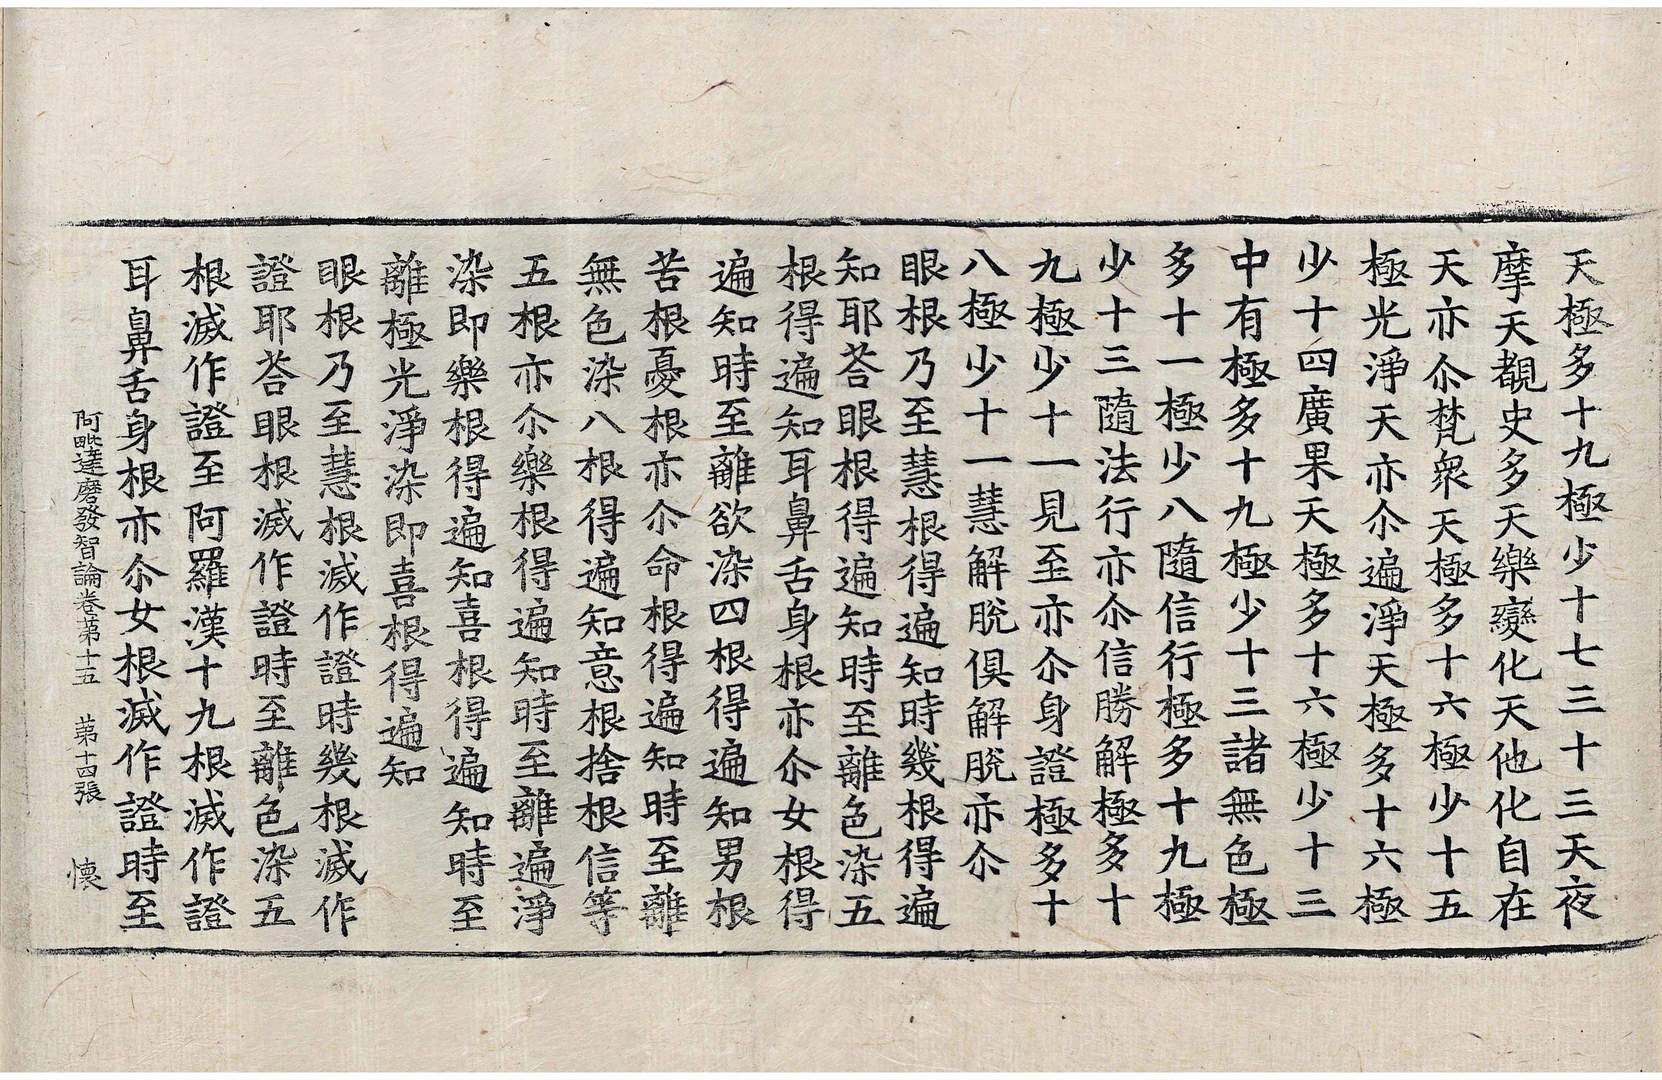 天極多十九極少十七三十三天夜
摩天覩史多天樂變化天他化自在
天亦尒梵衆天極多十六極少十五
極光淨天亦尒遍淨天極多十六極
少十四廣果天極多十六極少十三
中有極多十九極少十三諸無色極
多十一極少八隨信行極多十九極
少十三隨法行亦尒信勝解極多十
九極少十一見至亦尒身證極多十
八極少十一慧解脫俱解脫亦尒
眼根乃至慧根得遍知時幾根得遍
知耶荅眼根得遍知時至離色染五
根得遍知耳鼻舌身根亦尒女根得
遍知時至離欲染四根得遍知男根
苦根憂根亦尒命根得遍知時至離
無色染八根得遍知意根捨根信等
五根亦尒樂根得遍知時至離遍淨
染即樂根得遍知喜根得遍知時至
離極光淨染即喜根得遍知
眼根乃至慧根滅作證時幾根滅作
證耶荅眼根滅作證時至離色染五
根滅作證至阿羅漢十九根滅作證
耳鼻舌身根亦尒女根滅作證時至
阿毗達磨發智論卷第十五 苐十四張 懷